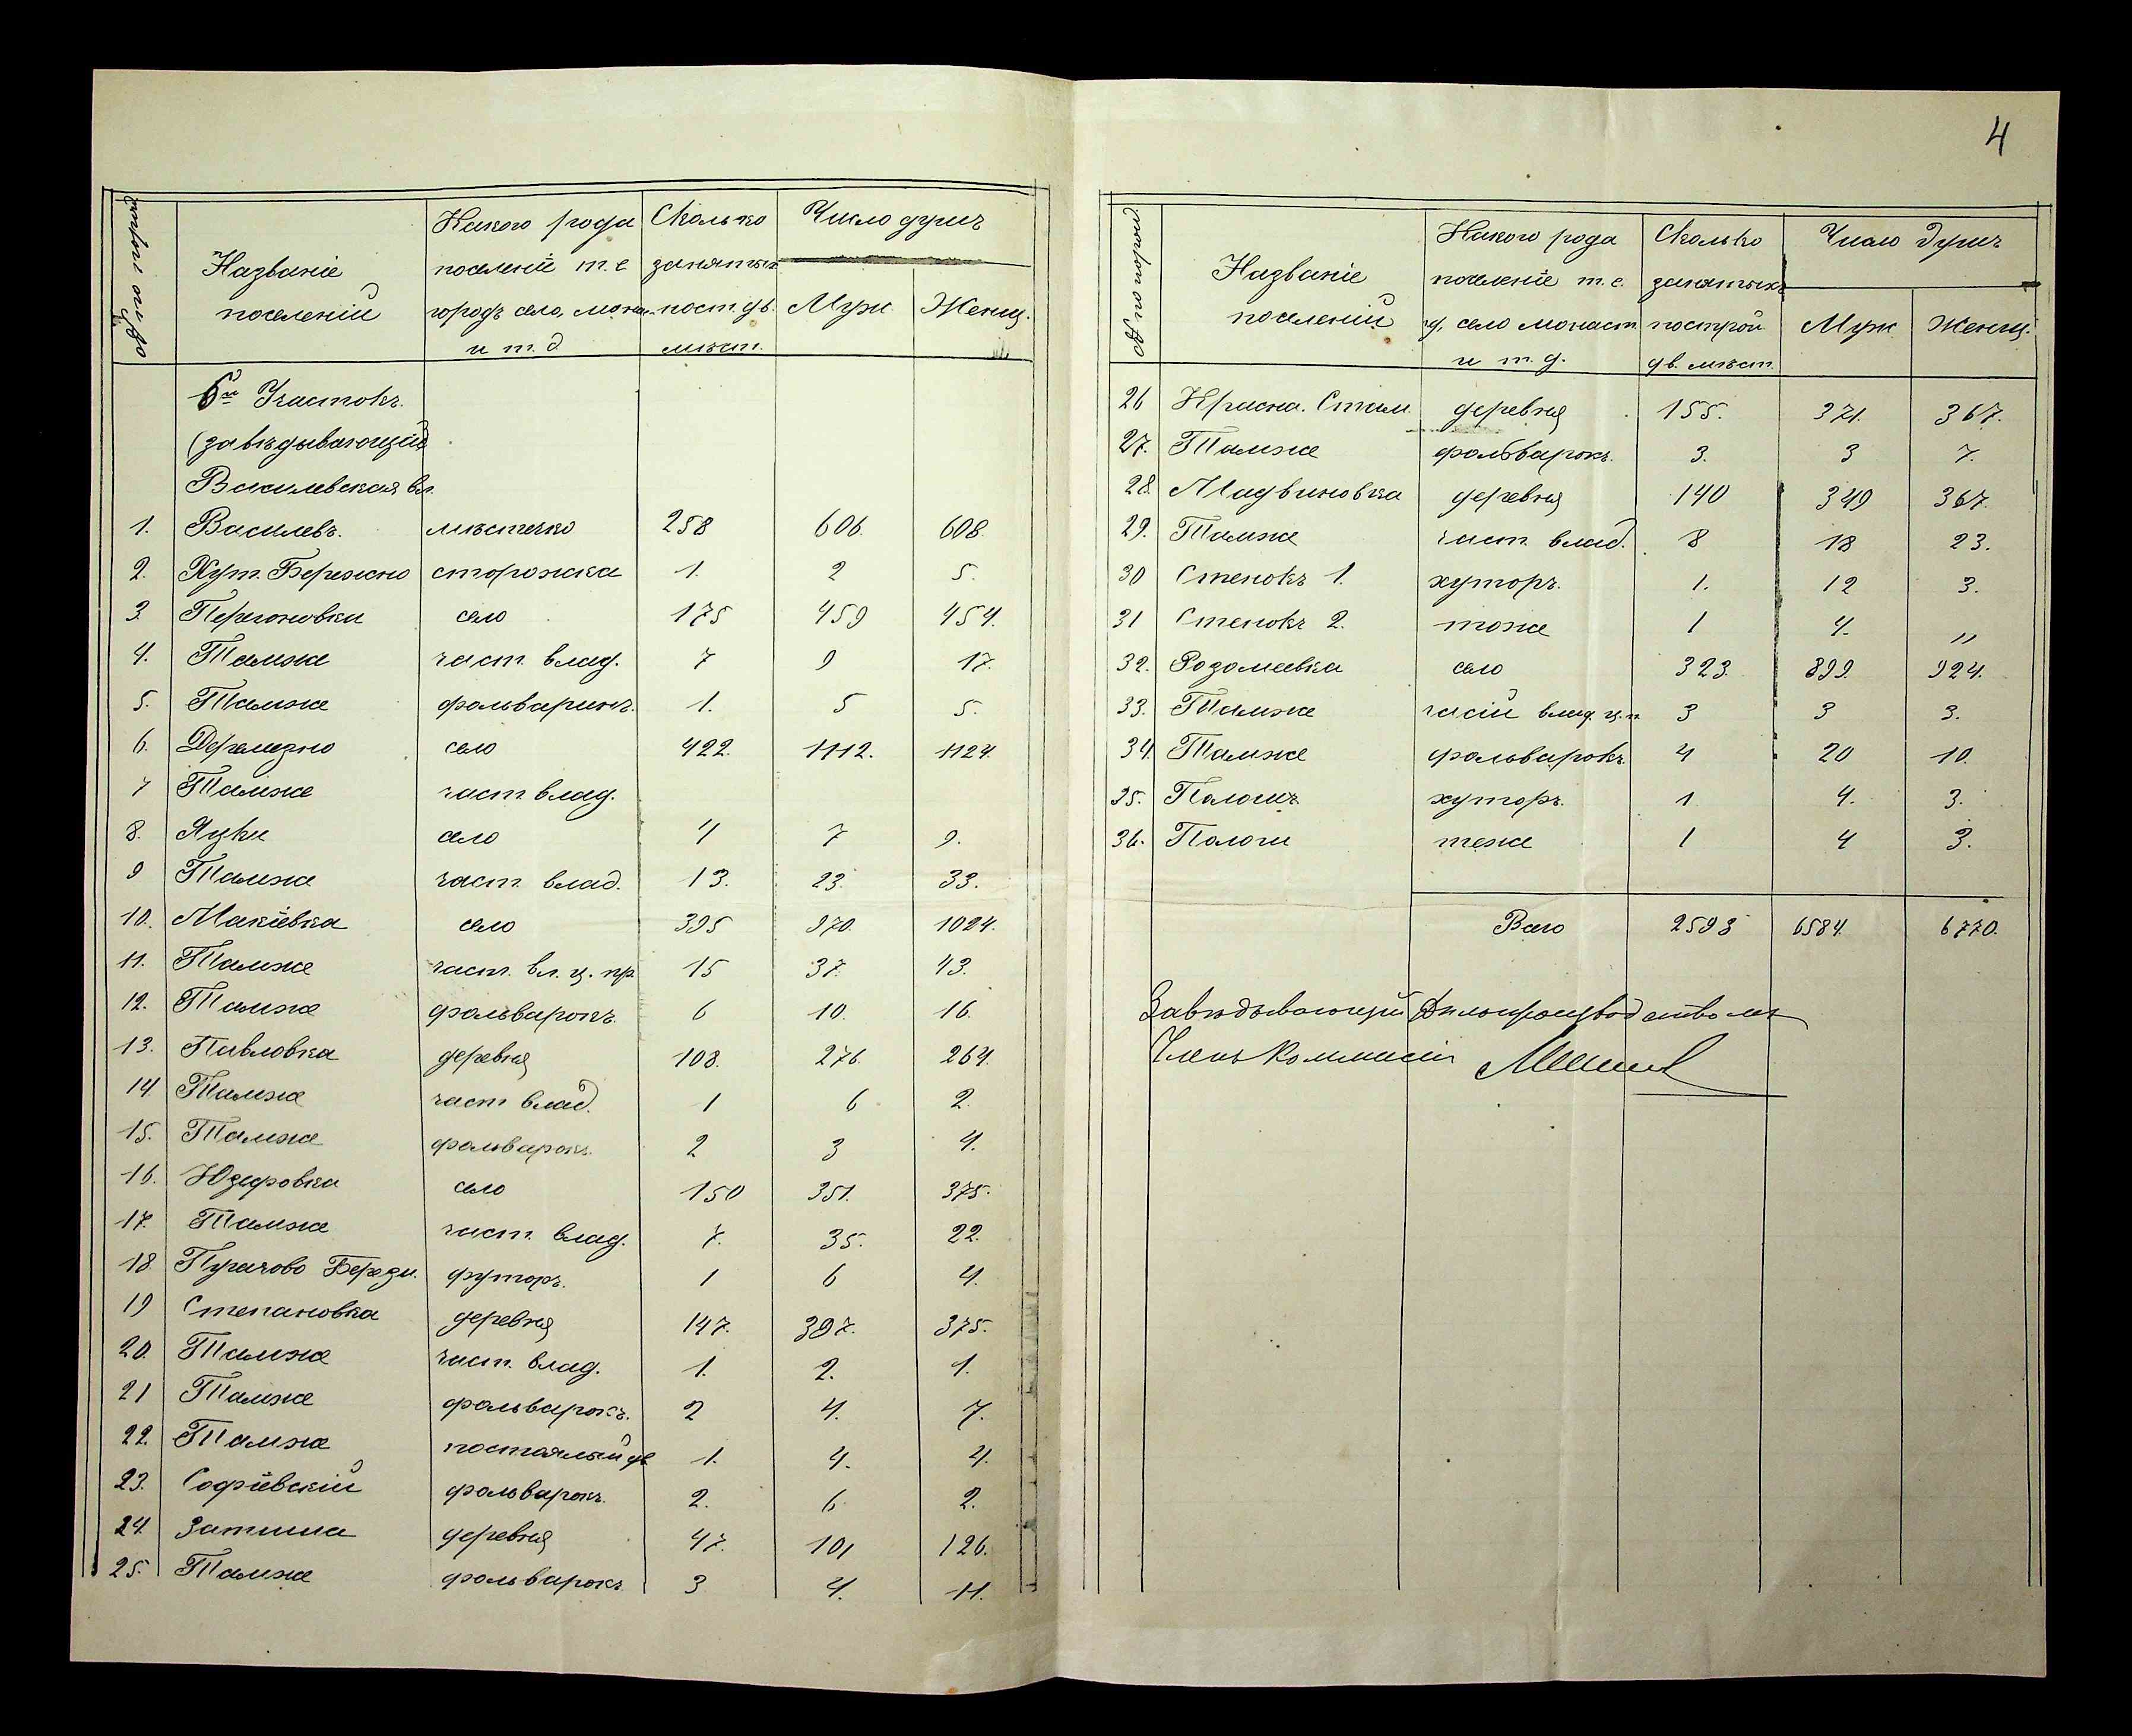 4
Названіе
поселеній
Какого рода
поселеніе т.е
городъ село, мона.
и т. д
Сколько
занятых
пост. дв.
мѣст.
Число душъ
Муж
Женщ.
6й Участокъ.
(завѣдывающій
Василевская вл.
1. Василевъ. мѣстечко 258 606. 608.
2. Хут. Бережно сторожка 1. 2 5.
3. Перегоновки село 175 459 454.
4. Тамже част. влад. 7 9 17.
5. Тамже фольварикъ. 1. 5 5.
6. Деремезно село 422. 1112. 1124.
7 Тамже част влад.
8. Яцки село 4 7 9.
9 Тамже част влад. 13. 23. 33.
10. Макіевка село 395 970. 1024.
11. Тамже част. вл. ц. пр 15 37. 43.
12. Тамже фольварокъ. 6 10. 16.
13. Павловка деревня 108. 276. 264.
14. Тамже част влад. 1 6 2.
15. Тамже фольварокъ. 2 3 4.
16. Юзефовка село 150 351. 375.
17. Тамже част. влад. 7. 35. 22.
18. Пугачово Берези. футоръ. 1 6 4.
19 Степановка деревня 147. 397. 375.
20. Тамже част. влад. 1. 2. 1.
21 Тамже фольварокъ. 2 4. 7.
22. Тамже постоялый дв 1. 4. 4.
23. Софіевскій фольварокъ. 2. 6 2.
24. Затиша деревня 47. 101 126.
25. Тамже фольварокъ 3 4. 11.
Названіе
поселеній
Какого рода
поселеніе т.е.
г., село монаст.
и т. д.
Сколько
занятыхъ
построй
дв. мѣст.
Число душъ
Муж.
Женщ.
26 Красна. Стам. деревня 155. 371. 367.
27. Тамже фольварокъ. 3. 3 7.
28. Мадвиновка деревня 140 349 367.
29. Тамже част. влад. 8 18 23.
30 Стенокъ 1. хуторъ. 1. 12 3.
31 Стенокъ 2. тоже 1 4. "
32. Розалиевка село 323. 899. 924.
33. Тамже часті влад. ц. п. 3 3 3.
34. Тамже фольварокъ. 4 20 10.
35. Пологъ. хуторъ. 1 4. 3.
36. Пологи тоже 1 4 3.
Всего 2593 6584. 6770.
Завѣдывающій Дѣлопроизводствомъ
Членъ Коммисіи